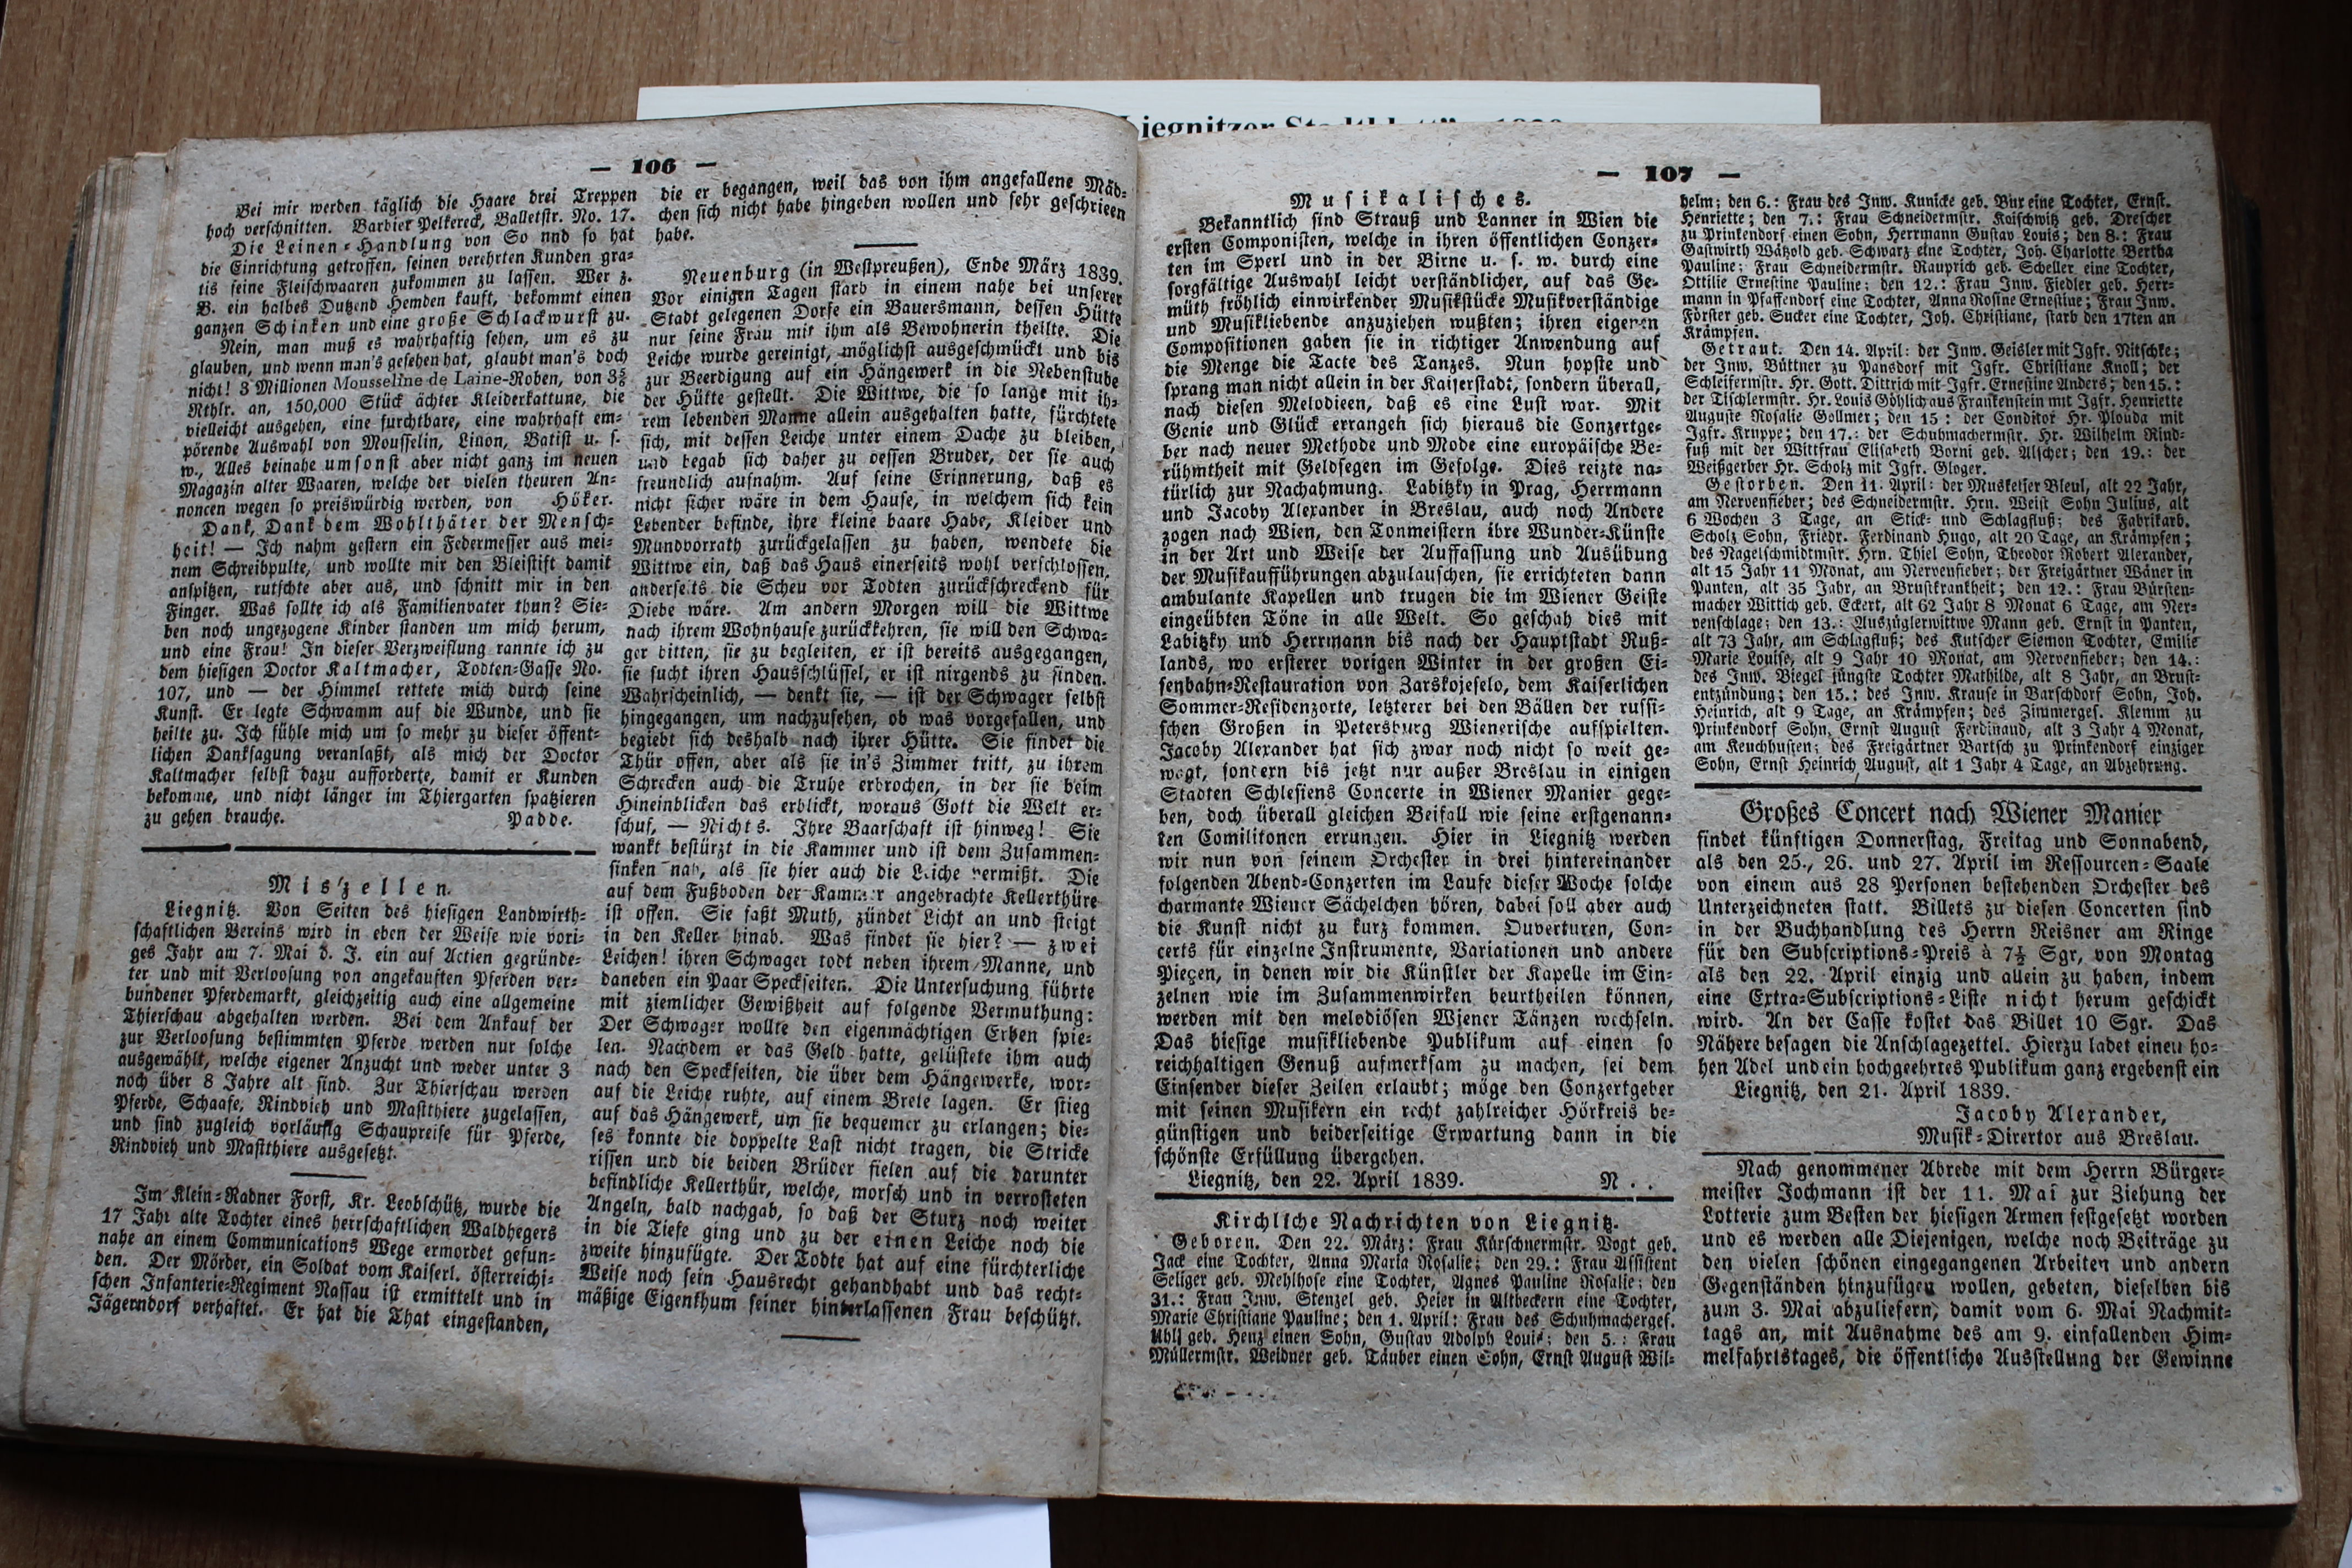 — 106 —
Bei mir werden täglich die Haare drei Treppen
hoch verschnitten. Barbier Pelkereck, Balletstr. No. 17.
Die Leinen-Handlung von So nnd so hat
die Einrichtung getroffen, seinen verehrten Kunden gra-
tis seine Fleischwaaren zukommen zu lassen. Wer z.
B. ein halbes Dutzend Hemden kauft, bekommt einen
ganzen Schinken und eine große Schlackwurst zu.
Nein, man muß es wahrhaftig sehen, um es zu
glauben, und wenn man's gesehen hat, glaubt man's doch
nicht! 3 Millionen Mousseline de Laine-Roben, von
Rthlr. an, 150,000 Stück ächter Kleiderkattune, die
vielleicht ausgehen, eine furchtbare, eine wahrhaft em-
pörende Auswahl von Mousselin, Linon, Batist u. s.
w., Alles beinahe umsonst aber nicht ganz im neuen
Magazin alter Waaren, welche der vielen theuren An-
noncen wegen so preiswürdig werden, von Höker.
Dank, Dank dem Wohlthäter der Mensch-
heit! — Ich nahm gestern ein Federmesser aus mei-
nem Schreibpulte, und wollte mir den Bleistift damit
anspitzen, rutschte aber aus, und schnitt mir in den
Finger. Was sollte ich als Familienvater thun? Sie-
ben noch ungezogene Kinder standen um mich herum,
und eine Frau! In dieser Verzweiflung rannte ich zu
dem hiesigen Doctor Kaltmacher, Todten-Gasse No.
107, und — der Himmel rettete mich durch seine
Kunst. Er legte Schwamm auf die Wunde, und sie
heilte zu. Ich fühle mich um so mehr zu dieser öffent-
lichen Danksagung veranlaßt, als mich der Doctor
Kaltmacher selbst dazu aufforderte, damit er Kunden
bekomme, und nicht länger im Thiergarten spatzieren
zu gehen brauche. Padde.
Miszellen.
Liegnitz. Von Seiten des hiesigen Landwirth-
schaftlichen Vereins wird in eben der Weise wie vori-
ges Jahr am 7. Mai d. J. ein auf Actien gegründe-
ter und mit Verloosung von angekauften Pferden ver-
bundener Pferdemarkt, gleichzeitig auch eine allgemeine
Thierschau abgehalten werden. Bei dem Ankauf der
zur Verloosung bestimmten Pferde werden nur solche
ausgewählt, welche eigener Anzucht und weder unter 3
noch über 8 Jahre alt sind. Zur Thierschau werden
Pferde, Schaafe, Rindvieh und Mastthiere zugelassen,
und sind zugleich vorläufig Schaupreise für Pferde,
Rindvieh und Mastthiere ausgesetzt.
Im Klein-Radner Forst, Kr. Leobschütz, wurde die
17 Jahr alte Tochter eines herrschaftlichen Waldhegers
nahe an einem Communications Wege ermordet gefun-
den. Der Mörder, ein Soldat vom Kaiserl. österreichi-
schen Infanterie-Regiment Nassau ist ermittelt und in
Jägerndorf verhaftet. Er hat die That eingestanden,
die er begangen, weil das von ihm angefallene Mäd-
chen sich nicht habe hingeben wollen und sehr geschrieen
habe.
Neuenburg (in Westpreußen), Ende März 1839.
Vor einigen Tagen starb in einem nahe bei unserer
Stadt gelegenen Dorfe ein Bauersmann, dessen Hütte
nur seine Frau mit ihm als Bewohnerin theilte. Die
Leiche wurde gereinigt, möglichst ausgeschmückt und bis
zur Beerdigung auf ein Hängewerk in die Nebenstube
der Hütte gestellt. Die Wittwe, die so lange mit ih-
rem lebenden Manne allein ausgehalten hatte, fürchtete
sich, mit dessen Leiche unter einem Dache zu bleiben,
und begab sich daher zu dessen Bruder, der sie auch
freundlich aufnahm. Auf seine Erinnerung, daß es
nicht sicher wäre in dem Hause, in welchem sich kein
Lebender befinde, ihre kleine baare Habe, Kleider und
Mundvorrath zurückgelassen zu haben, wendete die
Wittwe ein, daß das Haus einerseits wohl verschlossen,
anderseits die Scheu vor Todten zurückschreckend für
Diebe wäre. Am andern Morgen will die Wittwe
nach ihrem Wohnhause zurückkehren, sie will den Schwa-
ger bitten, sie zu begleiten, er ist bereits ausgegangen,
sie sucht ihren Hausschlüssel, er ist nirgends zu finden.
Wahrscheinlich, — denkt sie, — ist der Schwager selbst
hingegangen, um nachzusehen, ob was vorgefallen, und
begiebt sich deshalb nach ihrer Hütte. Sie findet die
Thür offen, aber als sie in's Zimmer tritt, zu ihrem
Schrecken auch die Truhe erbrochen, in der sie beim
Hineinblicken das erblickt, woraus Gott die Welt er-
schuf, — Nichts. Ihre Baarschaft ist hinweg! Sie
wankt bestürzt in die Kammer und ist dem Zusammen-
sinken nah, als sie hier auch die Leiche vermißt. Die
auf dem Fußboden der Kammer angebrachte Kellerthüre
ist offen. Sie faßt Muth, zündet Licht an und steigt
in den Keller hinab. Was findet sie hier? — zwei
Leichen! ihren Schwager todt neben ihrem Manne, und
daneben ein Paar Speckseiten. Die Untersuchung führte
mit ziemlicher Gewißheit auf folgende Vermuthung:
Der Schwager wollte den eigenmächtigen Erben spie-
len. Nachdem er das Geld hatte, gelüstete ihm auch
nach den Speckseiten, die über dem Hängewerke, wor-
auf die Leiche ruhte, auf einem Brete lagen. Er stieg
auf das Hängewerk, um sie bequemer zu erlangen; die-
ses konnte die doppelte Last nicht tragen, die Stricke
rissen und die beiden Brüder fielen auf die darunter
befindliche Kellerthür, welche, morsch und in verrosteten
Angeln, bald nachgab, so daß der Sturz noch weiter
in die Tiefe ging und zu der einen Leiche noch die
zweite hinzufügte. Der Todte hat auf eine fürchterliche
Weise noch sein Hausrecht gehandhabt und das recht-
mäßige Eigenthum seiner hinterlassenen Frau beschützt.
— 107 —
Musikalisches.
Bekanntlich sind Strauß und Lanner in Wien die
ersten Componisten, welche in ihren öffentlichen Conzer-
ten im Sperl und in der Birne u. s. w. durch eine
sorgfältige Auswahl leicht verständlicher, auf das Ge-
müth fröhlich einwirkender Musikstücke Musikverständige
und Musikliebende anzuziehen wußten; ihren eigenen
Compositionen gaben sie in richtiger Anwendung auf
die Menge die Tacte des Tanzes. Nun hopste und
sprang man nicht allein in der Kaiserstadt, sondern überall,
nach diesen Melodieen, daß es eine Lust war. Mit
Genie und Glück errangen sich hieraus die Conzertge-
ber nach neuer Methode und Mode eine europäische Be-
rühmtheit mit Geldsegen im Gefolge. Dies reizte na-
türlich zur Nachahmung. Labitzky in Prag, Herrmann
und Jacoby Alexander in Breslau, auch noch Andere
zogen nach Wien, den Tonmeistern ihre Wunder-Künste
in der Art und Weise der Auffassung und Ausübung
der Musikaufführungen abzulauschen, sie errichteten dann
ambulante Kapellen und trugen die im Wiener Geiste
eingeübten Töne in alle Welt. So geschah dies mit
Labitzky und Herrmann bis nach der Hauptstadt Ruß-
lands, wo ersterer vorigen Winter in der großen Ei-
senbahn-Restauration von Zarskojeselo, dem Kaiserlichen
Sommer-Residenzorte, letzterer bei den Bällen der russi-
schen Großen in Petersburg Wienerische aufspielten.
Jacoby Alexander hat sich zwar noch nicht so weit ge-
wagt, sondern bis jetzt nur außer Breslau in einigen
Städten Schlesiens Concerte in Wiener Manier gege-
ben, doch überall gleichen Beifall wie seine erstgenann-
ten Comilitonen errungen. Hier in Liegnitz werden
wir nun von seinem Orchester in drei hintereinander
folgenden Abend-Conzerten im Laufe dieser Woche solche
charmante Wiener Sächelchen hören, dabei soll aber auch
die Kunst nicht zu kurz kommen. Ouverturen, Con-
certs für einzelne Instrumente, Variationen und andere
Pieçen, in denen wir die Künstler der Kapelle im Ein-
zelnen wie im Zusammenwirken beurtheilen können,
werden mit den melodiösen Wiener Tänzen wechseln.
Das hiesige musikliebende Publikum auf einen so
reichhaltigen Genuß aufmerksam zu machen, sei dem
Einsender dieser Zeilen erlaubt; möge den Conzertgeber
mit seinen Musikern ein recht zahlreicher Hörkreis be-
günstigen und beiderseitige Erwartung dann in die
schönste Erfüllung übergehen.
Liegnitz, den 22. April 1839. N . .
Kirchliche Nachrichten von Liegnitz.
Geboren. Den 22. März: Frau Kürschnermstr. Vogt geb.
Jack eine Tochter, Anna Maria Rosalie; den 29.: Frau Assistent
Seliger geb. Mehlhose eine Tochter, Agnes Pauline Rosalie; den
31.: Frau Inw. Stenzel geb. Heier in Altbeckern eine Tochter,
Marie Christiane Pauline; den 1. April: Frau des Schuhmacherges.
geb. Henz einen Sohn, Gustav Adolph Louis; den 5.: Frau
Müllermstr. Weidner geb. Täuber einen Sohn, Ernst August Wil-
helm; den 6.: Frau des Inw. Kunicke geb. eine Tochter, Ernst.
Henriette; den 7.: Frau Schneidermstr. Kaischwitz geb. Drescher
zu Prinkendorf einen Sohn, Herrmann Gustav Louis; den 8.: Frau
Gastwirth Wätzold geb. Schwarz eine Tochter, Joh. Charlotte Bertha
Pauline; Frau Schneidermstr. Rauprich geb. Scheller eine Tochter,
Ottilie Ernestine Pauline; den 12.: Frau Inw. Fiedler geb. Herr-
mann in Pfaffendorf eine Tochter, Anna Rosine Ernestine; Frau Inw.
Förster geb. Sucker eine Tochter, Joh. Christiane, starb den 17ten an
Krämpfen.
Getraut. Den 14. April: der Inw. Geisler mit Igfr. Nitschke;
der Inw. Büttner zu Pansdorf mit Igfr. Christiane Knoll; der
Schleifermstr. Hr. Gott. Dittrich mit Igfr. Ernestine Anders; den 15.:
der Tischlermstr. Hr. Louis Göhlich aus Frankenstein mit Igfr. Henriette
Auguste Rosalie Gollmer; den 15: der Conditor Hr. Plouda mit
Igfr. Kruppe; den 17.: der Schuhmachermstr. Hr. Wilhelm Rind-
fuß mit der Wittfrau Elisabeth Vorni geb. Alscher; den 19.: der
Weißgerber Hr. Scholz mit Igfr. Gloger.
Gestorben. Den 11. April: der Musketier Bleul, alt 22 Jahr,
am Nervenfieber; des Schneidermstr. Hrn. Weist Sohn Julius, alt
6 Wochen 3 Tage, an Stick- und Schlagfluß; des Fabrikarb.
Scholz Sohn, Friedr. Ferdinand Hugo, alt 20 Tage, an Krämpfen;
des Nagelschmidtmstr. Hrn. Thiel Sohn, Theodor Robert Alexander,
alt 15 Jahr 11 Monat, am Nervenfieber; der Freigärtner Wäner in
Panten, alt 35 Jahr, an Brustkrankheit; den 12.: Frau Bürsten-
macher Wittich geb. Eckert, alt 62 Jahr 8 Monat 6 Tage, am Ner-
venschlage; den 13.: Auszüglerwittwe Mann geb. Ernst in Panten,
alt 73 Jahr, am Schlagfluß; des Kutscher Siemon Tochter, Emilie
Marie Louise, alt 9 Jahr 10 Monat, am Nervenfieber; den 14.:
des Inw. Biegel jüngste Tochter Mathilde, alt 8 Jahr, an Brust-
entzündung; den 15.: des Inw. Krause in Barschdorf Sohn, Joh.
Heinrich, alt 9 Tage, an Krämpfen; des Zimmerges. Klemm zu
Prinkendorf Sohn, Ernst August Ferdinand, alt 3 Jahr 4 Monat,
am Keuchhusten; des Freigärtner Bartsch zu Prinkendorf einziger
Sohn, Ernst Heinrich August, alt 1 Jahr 4 Tage, an Abzehrung.
Großes Concert nach Wiener Manier
findet künftigen Donnerstag, Freitag und Sonnabend,
als den 25., 26. und 27. April im Ressourcen-Saale
von einem aus 28 Personen bestehenden Orchester des
Unterzeichneten statt. Billets zu diesen Concerten sind
in der Buchhandlung des Herrn Reisner am Ringe
für den Subscriptions-Preis à 7½ Sgr, von Montag
als den 22. April einzig und allein zu haben, indem
eine Extra-Subscriptions-Liste nicht herum geschickt
wird. An der Casse kostet das Billet 10 Sgr. Das
Nähere besagen die Anschlagezettel. Hierzu ladet einen ho-
hen Adel und ein hochgeehrtes Publikum ganz ergebenst ein
Liegnitz, den 21. April 1839.
Jacoby Alexander,
Musik-Direrтor aus Breslau.
Nach genommener Abrede mit dem Herrn Bürger-
meister Jochmann ist der 11. Mai zur Ziehung der
Lotterie zum Besten der hiesigen Armen festgesetzt worden
und es werden alle Diejenigen, welche noch Beiträge zu
den vielen schönen eingegangenen Arbeiten und andern
Gegenständen hinzufügen wollen, gebeten, dieselben bis
zum 3. Mai abzuliefern, damit vom 6. Mai Nachmit-
tags an, mit Ausnahme des am 9. einfallenden Him-
melfahrtstages, die öffentliche Ausstellung der Gewinne